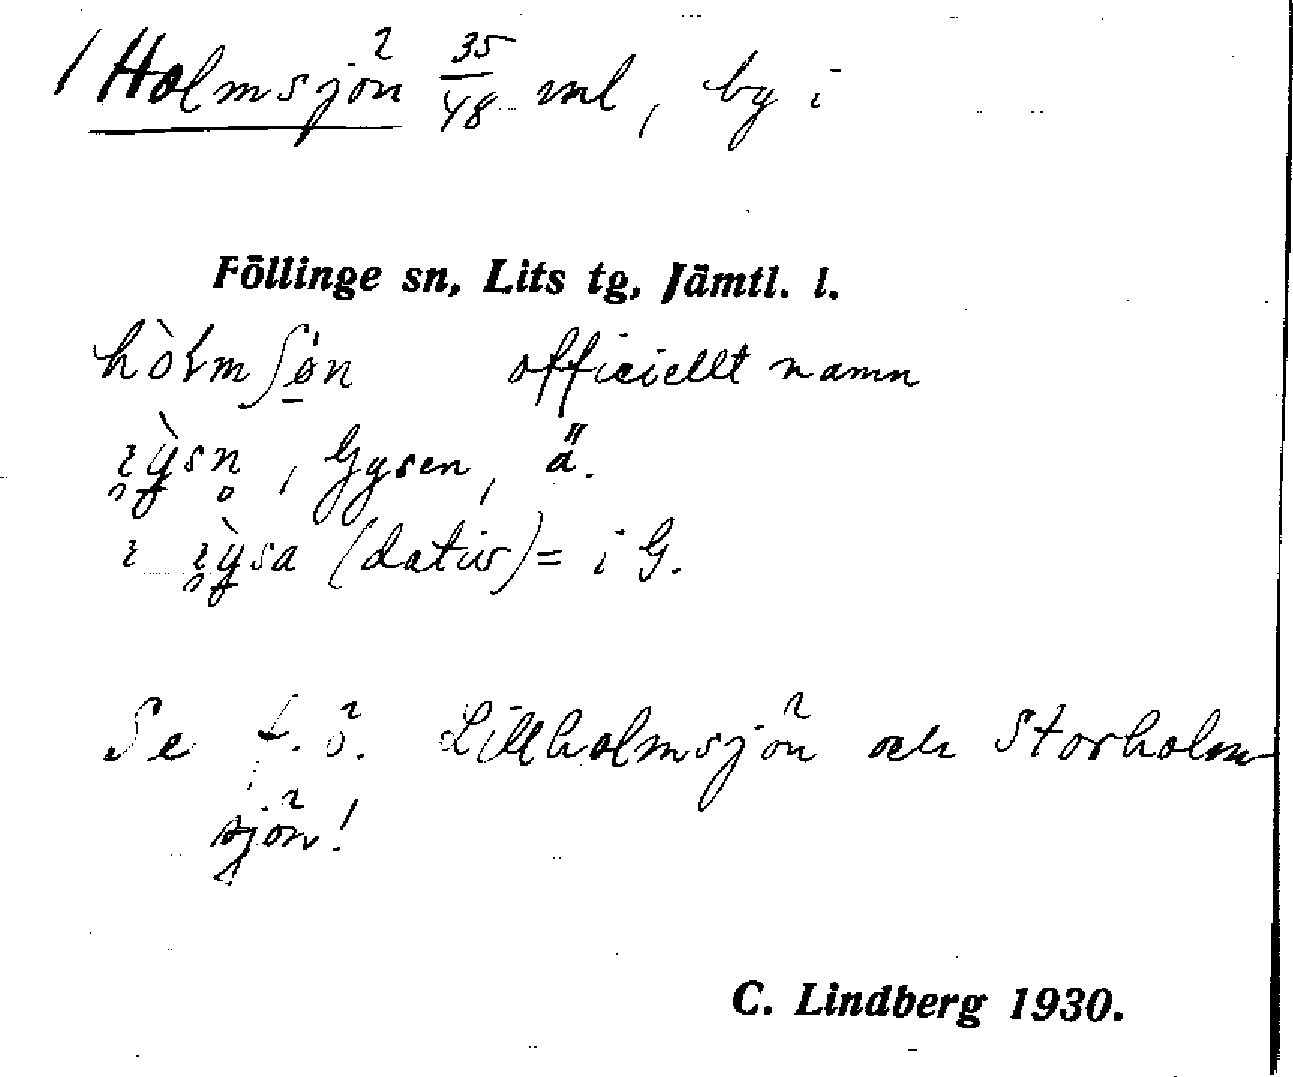 1 Holmsjön 35/48 ml, by i
Föllinge sn, Lits tg, Jämtl. l.
officiellt namn
, Gysen, ä.
(dativ) = i G.
Se f. ö. Lillholmsjön och Storholm-
sjön!
C. Lindberg 1930.